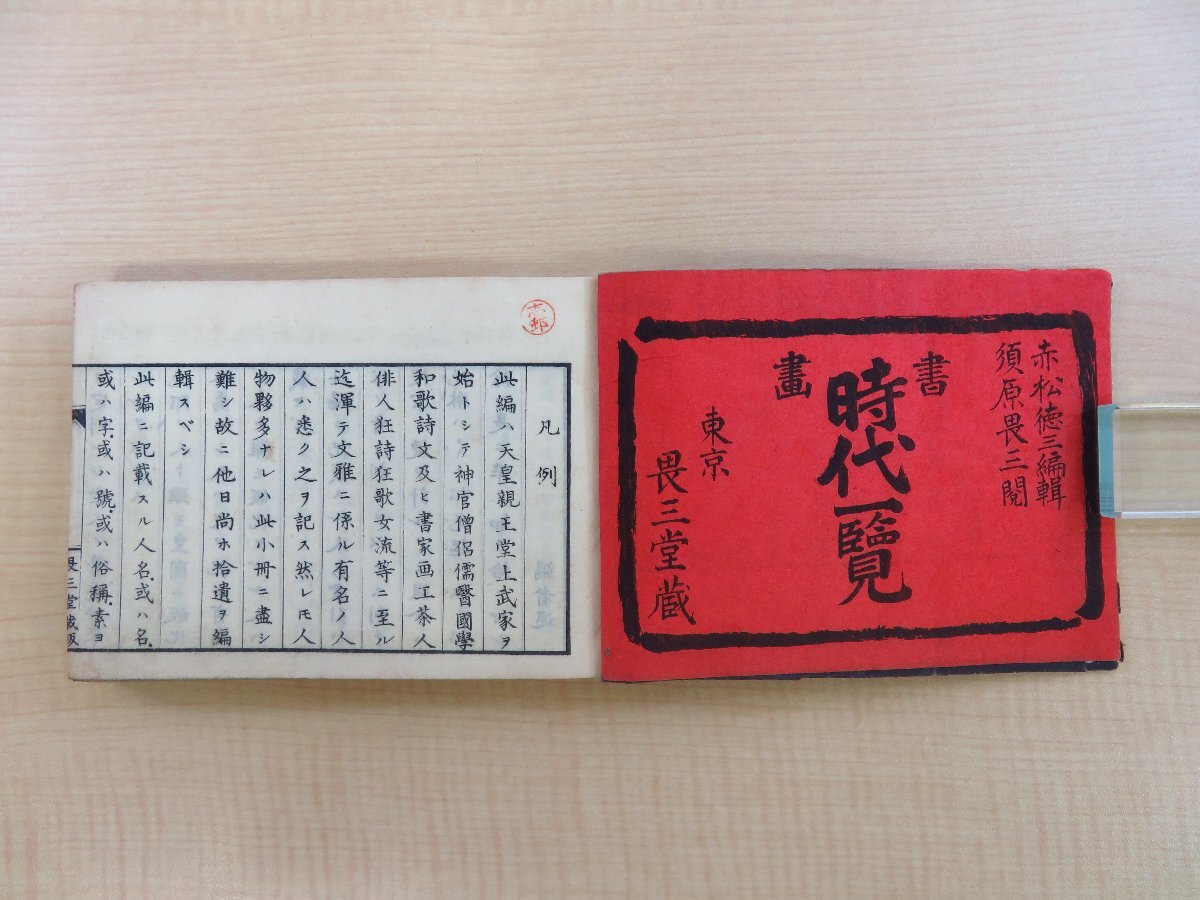 赤松徳三編輯
須原畏三閲
書畫
時代一覽
東京
畏三堂蔵
六郷
凡例
此編ハ天皇親王堂上武家ヲ
始トシテ神官僧侶儒醫國學
和歌詩文及ヒ書家画工茶人
俳人狂詩狂歌女流等ニ至ル
迄渾テ文雅ニ係ル有名ノ人
人ハ悉ク之ヲ記ス然レモ人
物夥多ナレハ此小冊ニ盡シ
難シ故ニ他日尚ホ拾遺ヲ編
輯スベシ
此編ニ記載スル人名或ハ名
或ハ字或ハ號或ハ俗稱素ヨ
畏三堂蔵版